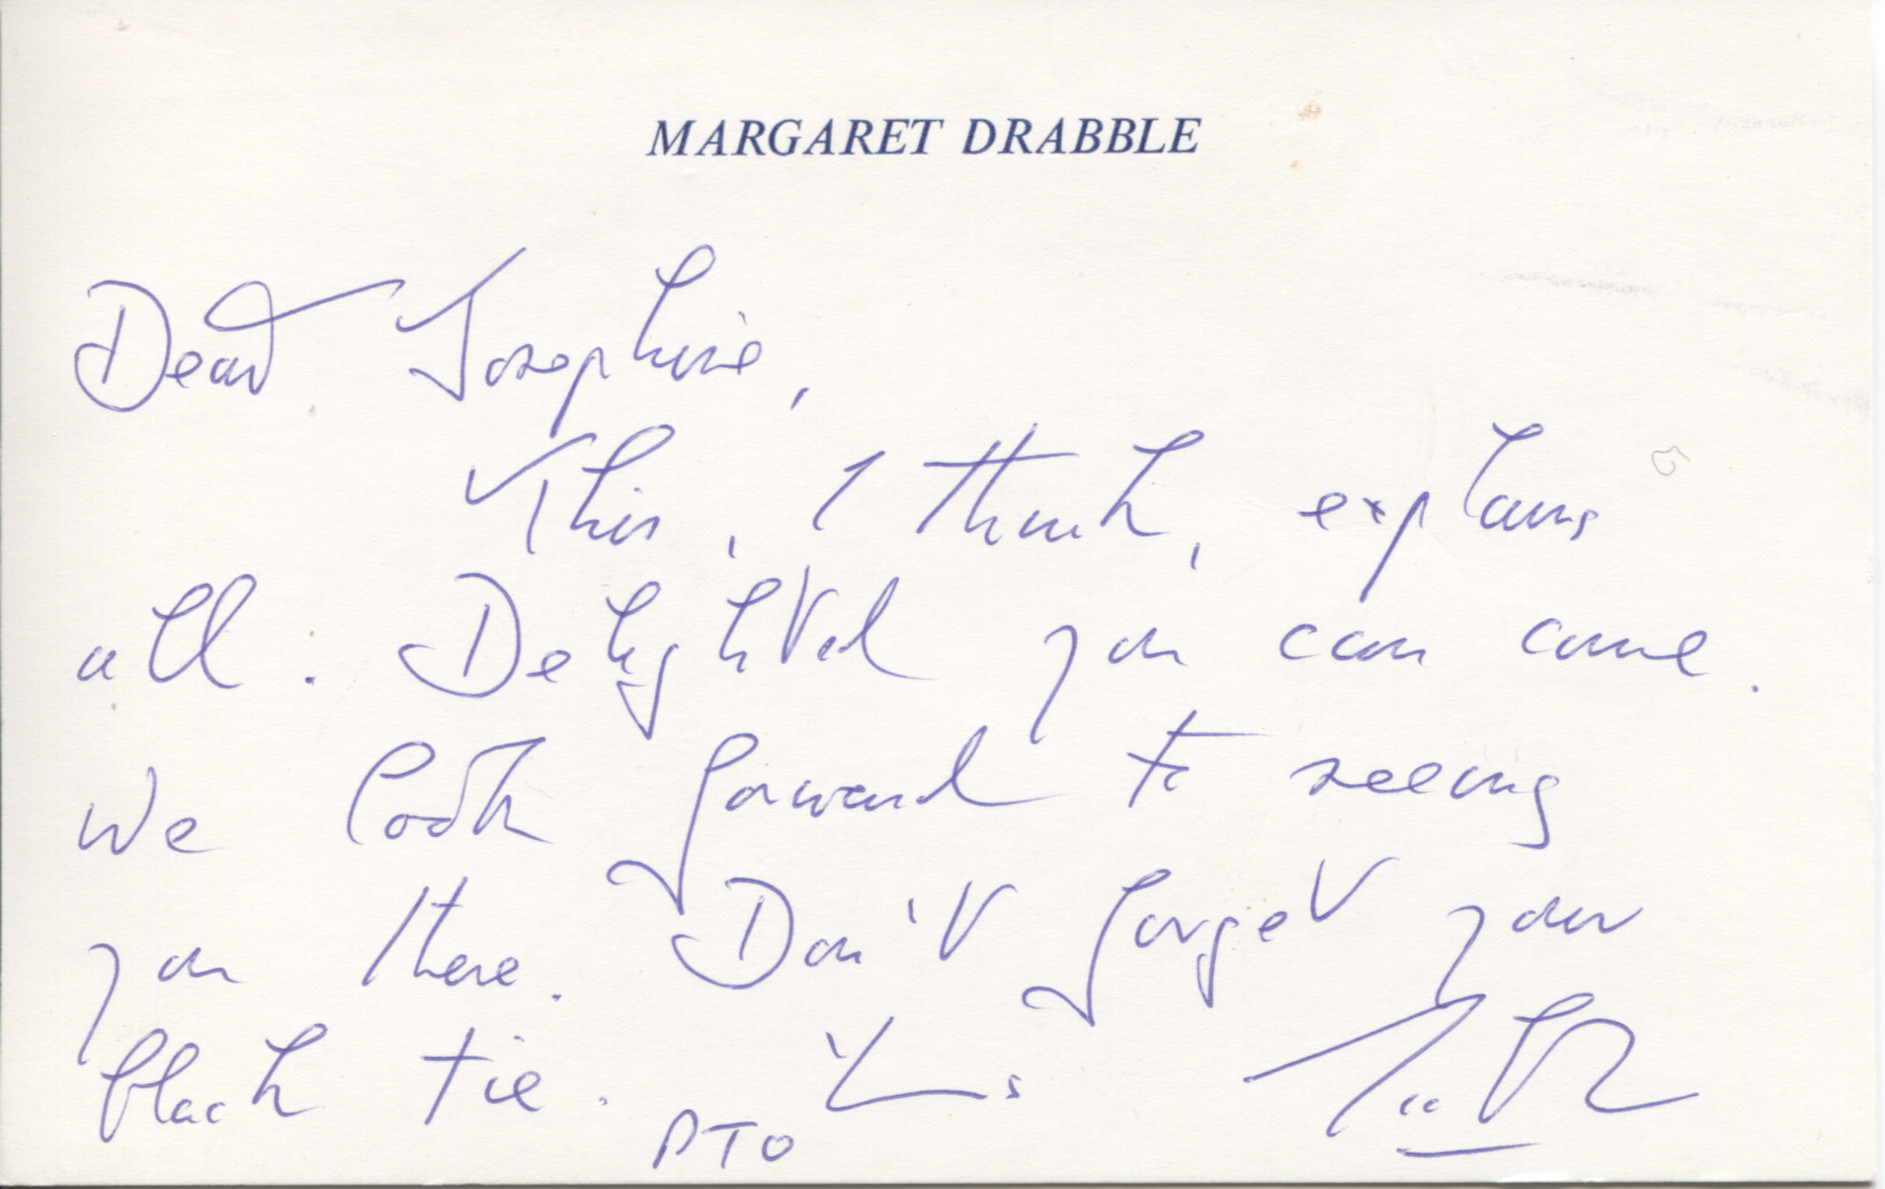 MARGARET DRABBLE
Dear Josephine,
This, I think, explains
all. Delighted you can come.
We look forward to seeing
you there. Don't forget your
black tie. Yours
PTO